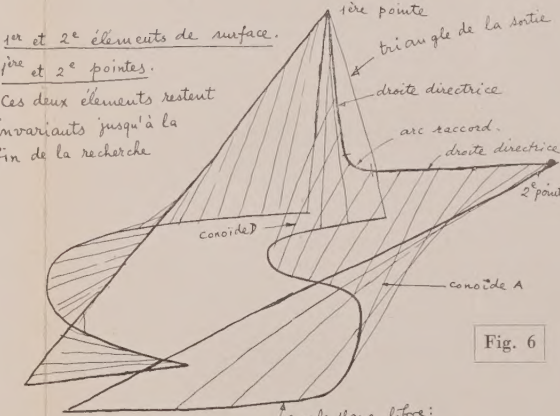 1er et 2e éléments de surface.
1ère et 2e pointes.
Ces deux éléments restent
invariants jusqu'à la
fin de la recherche
1ère pointe
triangle de la sortie
droite directrice
arc raccord.
droite directrice
2e point
conoïde D
conoïde A
Fig. 6
libre: